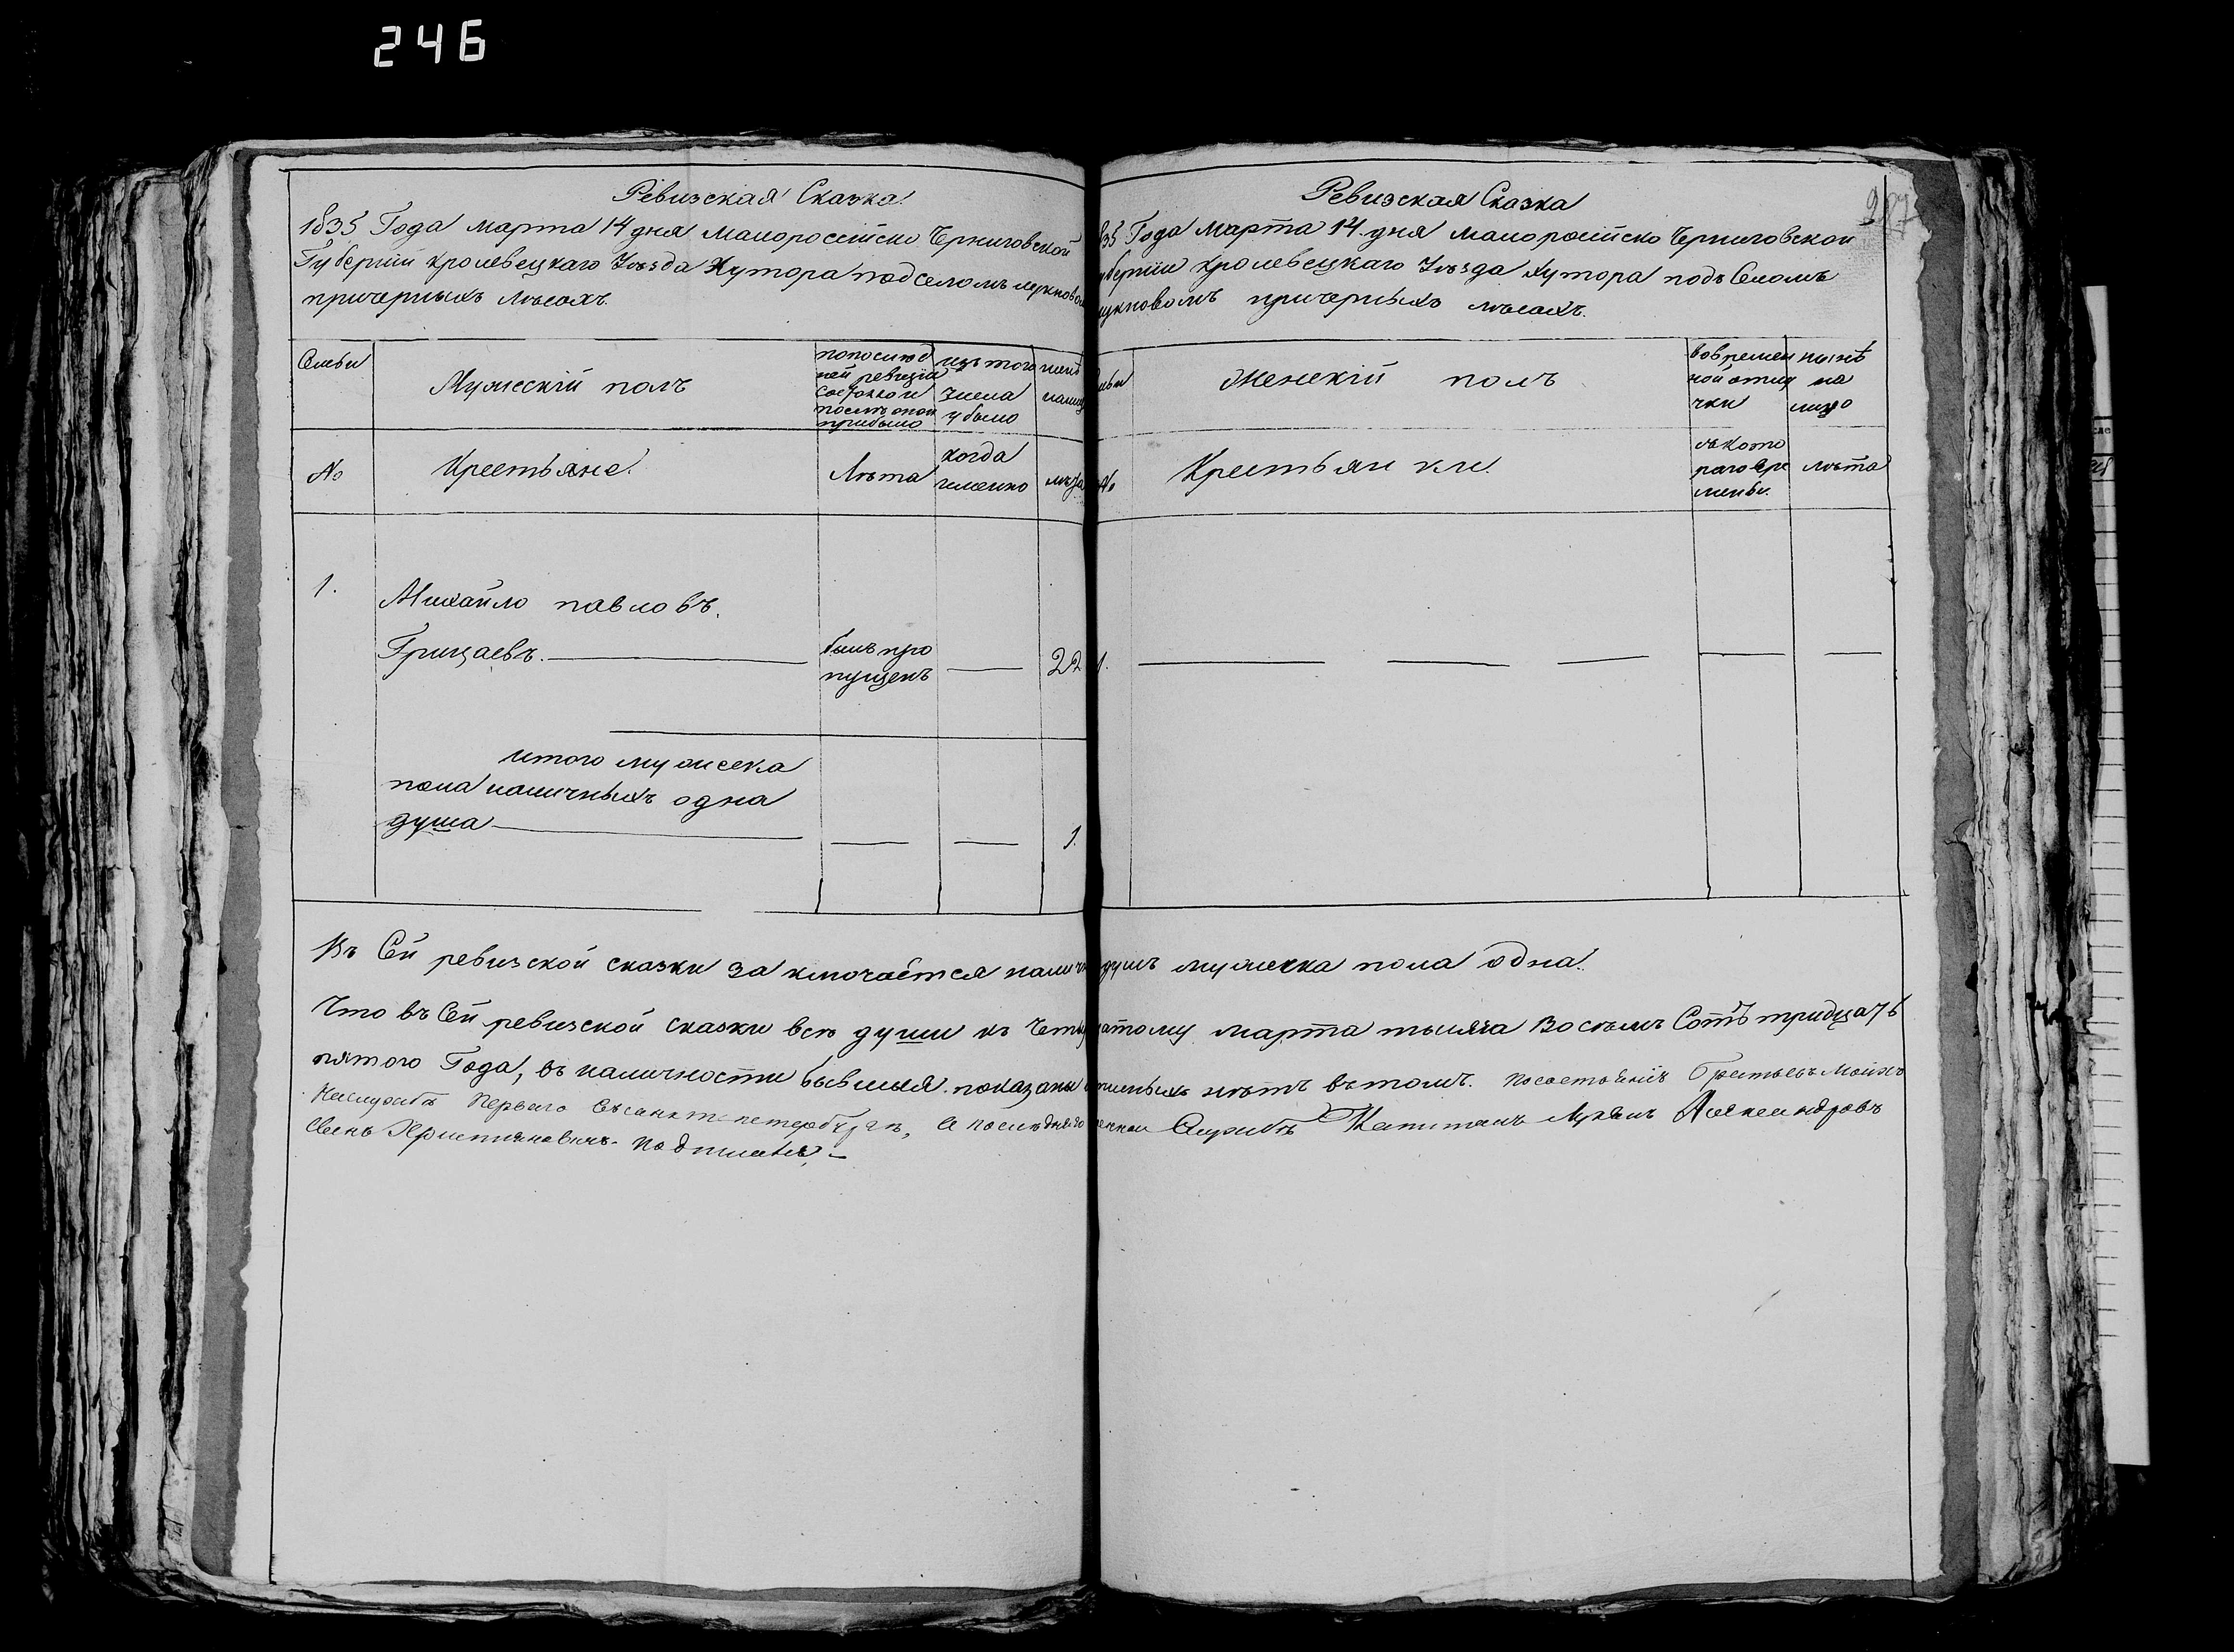 246
Ревизская Сказка
1835 Года марта 14 дня Малоросійско Черниговской
Губерніи Кролевецкаго Уѣзда Хутора под селомъ лукново
причерныхъ лѣсахъ.
Семьи
Мужескій полъ
попослѣд
ней ревизіи
состояло и
послѣ оной
прибыло
изъ того
числа
убыло
нынѣ
налиц
№
Крестьяне.
Лѣта
когда
именно
лѣта
1.
Михайло павловъ
Грицаевъ.
былъ про
пущенъ
22
итого мужеска
пола наличныхъ одна
душа
1.
Ревизская Сказка
835 Года Марта 14. дня Малоросійско Черниговской
уберніи Кролевецкаго Уѣзда Хутора подъ Селомъ
укновомъ причерныхъ лѣсахъ.
927
емьи
Женскій полъ
вовремен
ной отлу
чки
нынѣ
на
лицо
№
Крестьянки.
съ кото
раго вре
мени.
лѣта
1.
Въ Сей ревизской сказки заключается налич душъ мужеска пола одна.
Что въ Сей ревизской сказки всѣ души къ Четыр атому марта тысяча Восемь Сотъ тридцать
пятого Года, въ наличности бывшыя показаны и нѣтъ въ томъ. Братьевъ Моихъ
Первого Въ санктъ петербургѣ, а последняго Капитанъ Лукьян Александровъ
Сынъ Подписалъ. –